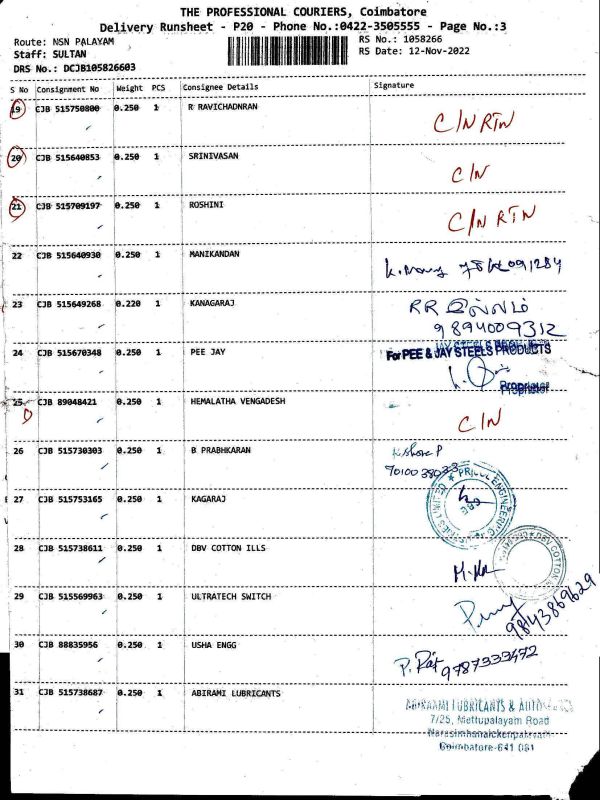 THE PROFESSIONAL COURIERS, Coimbatore
Delivery Runsheet - P20 - Phone No.:0422-3505555 - Page No.:3
Route: NSN PALAYAM RS No.: 1058266
Staff: SULTAN RS Date: 12-Nov-2022
DRS No.: DCJB105826603
S No Consignment No Weight PCS Consignee Details Signature
19 CJB 515750800 0.250 1 R RAVICHADNRAN C/N RTN
20 CJB 515640853 0.250 1 SRINIVASAN C/N
21 CJB 515709197 0.250 1 ROSHINI C/N RTN
22 CJB 515640930 0.250 1 MANIKANDAN
23 CJB 515649268 0.220 1 KANAGARAJ RR இல்லம்
9894009312
24 CJB 515670348 0.250 1 PEE JAY For PEE & JAY STEELS PRODUCTS
Proprietor
25 CJB 89048421 0.250 1 HEMALATHA VENGADESH C/N
26 CJB 515730303 0.250 1 B PRABHKARAN Kishore P
27 CJB 515753165 0.250 1 KAGARAJ
28 CJB 515738611 0.250 1 DBV COTTON ILLS
29 CJB 515569963 0.250 1 ULTRATECH SWITCH
9843869629
30 CJB 88835956 0.250 1 USHA ENGG 9787333472
31 CJB 515738687 0.250 1 ABIRAMI LUBRICANTS ABIRAMI LUBRICANTS &
7/25, Mettupalayam Road
Narasimhanaickenpalayam
Coimbatore-641 031